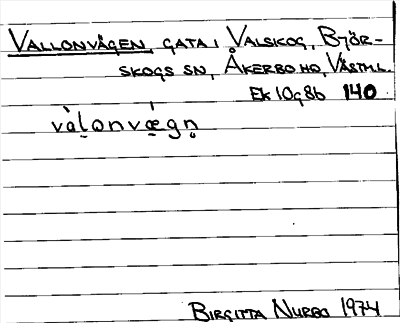 VALLONVÄGEN, GATA I VALSKOG, BJÖR-
SKOGS SN, ÅKERBO HD, VÄSTML.
EK 10g8b 140
vàl̠onvǽ̠gn̥
BIRGITTA NURBO 1974